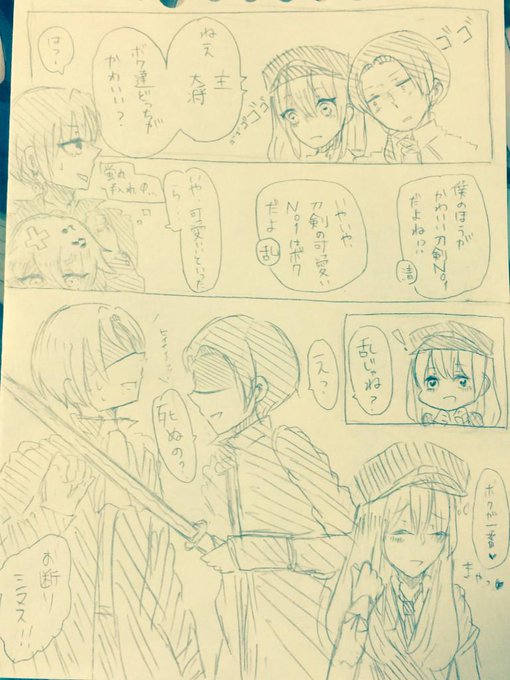 ゴゴ
ねえ
主
大将
ボク達どっちが
かわいい？
ゴゴゴ
はっ？
蛍丸
お手入れ中。
僕のほうが
かわいい刀剣No.1
だよね！？
清
いやいや、
刀剣の可愛い
No.1はボク
だよ
乱
いや、可愛いといった
ら…
！
乱じゃね？
えっ？
死ぬの？
ボクが一番♥
きゃっ
お断り
シマス！！